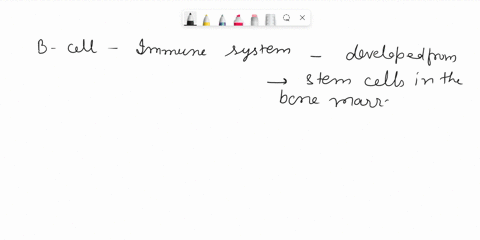 B-cell - Immune system - developed from
→ stem cells in the
bone marr